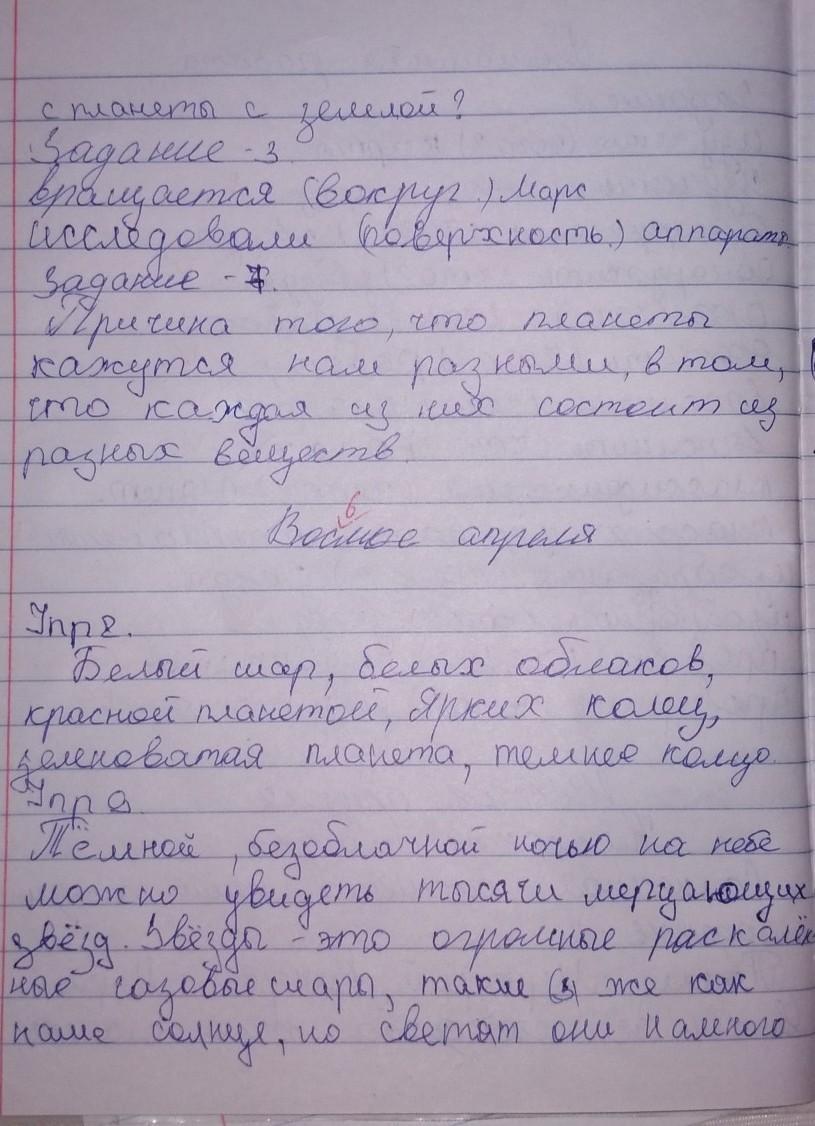 с планеты с землой?
Задание - 3
вращается (вокруг.) Марс
исследовали (поверхность.) аппараты
Задание - 7.
Причина того, что планеты
кажутся нам разными, в том,
что каждая из них состоит из
разных веществ.
6
Восмое апреля
Упр 8.
Белый шар, белых облаков,
красной планетой, ярких колец,
зеленоватая планета, темнее колцо.
Упр 9
Тёмной, безоблачной ночью на небе
можно увидеть тысячи мерцающих
звёзд. Звёзды - это огромные раскалён
ные газовые шары, такие (з) же как
наше солнце, но светят они намного